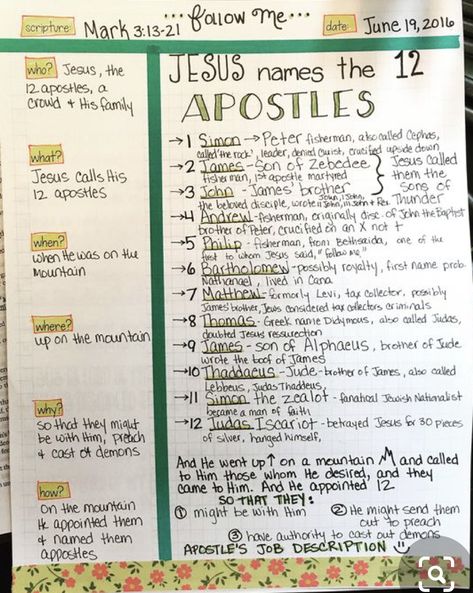 ...follow Me...
scripture: Mark 3:13-21
date: June 19, 2016
who? Jesus, the
12 apostles, a
crowd & His family
what?
Jesus calls His
12 apostles
when?
when He was on the
mountain
where?
up on the mountain
why?
so that they might
be with Him, preach
& cast of demons
how?
on the mountain
He appointed them
& named them
appostles
JESUS names the 12
APOSTLES
→1 Simon → Peter fisherman, also called Cephas,
called 'the rock', leader, denied Christ, crucified upside down
→2 James - son of Zebedee
fisherman, 1st apostle martyred
→3 John - James' brother
the beloved disciple, wrote John, 1 John, II John, III John & Rev.
} Jesus called
them the
sons of
Thunder
→4 Andrew - fisherman, originally disc. of John the Baptist
brother of Peter, crucified on an X not +
→5 Philip - fisherman, from Bethsaida, one of the
first to whom Jesus said, "follow me"
→6 Bartholomew - possibly royalty, first name prob.
Nathanael, lived in Cana
→7 Matthew - formorly Levi, tax collector, possibly
James' brother, Jews considered tax collectors criminals
→8 Thomas - Greek name Didymous, also called Judas,
doubted Jesus ressurection
→9 James - son of Alphaeus, brother of Jude
wrote the boof of James
→10 Thaddaeus - Jude - brother of James, also called
Lebbeus, Judas Thaddeus,
→11 Simon the zealot - fanatical Jewish Nationalist
became a man of faith
→12 Judas Iscariot - betrayed Jesus for 30 pieces
of silver, hanged himself,
And He went up↑ on a mountain and called
to Him those whom He desired, and they
came to Him. And He appointed 12.
SO THAT THEY:
① might be with Him
② He might send them
out to preach
③ have authority to cast out demons
APOSTLE'S JOB DESCRIPTION